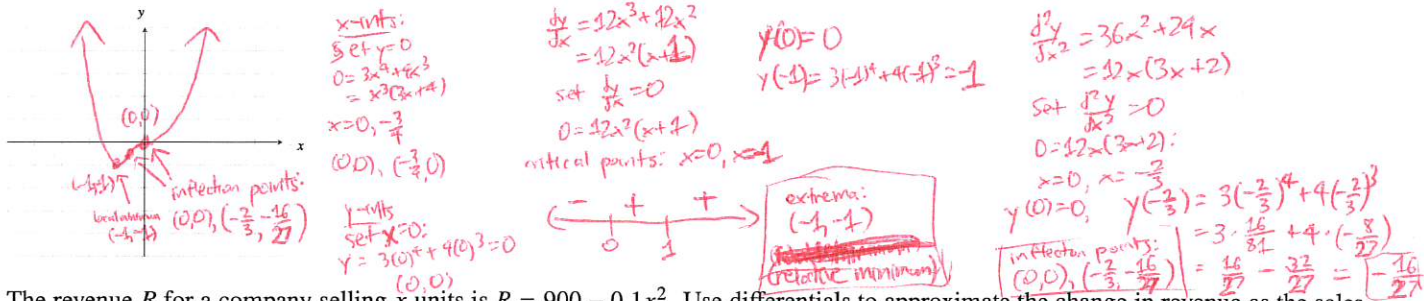 y
x
(0,0)
(-1,-1)
local minimum
(-1,-1)
inflection points:
(0,0), (-2/3, -16/27)
x-ints:
set y=0
0=3x⁴+4x³
= x³(3x+4)
x=0, -3/4
(0,0), (-3/4,0)
y-ints
set x=0:
y = 3(0)⁴+4(0)³=0
(0,0)
dy/dx = 12x³+12x²
= 12x²(x+1)
set dy/dx =0
0=12x²(x+1)
critical points: x=0, x=-1
- + +
0 1
y(0)=0
y(-1)= 3(-1)⁴+4(-1)³=-1
extrema:
(-1,-1)
(relative minimum)
d²y/dx² = 36x²+24x
= 12x(3x+2)
set d²y/dx² =0
0=12x(3x+2):
x=0, x=-2/3
y(0)=0, y(-2/3) = 3(-2/3)⁴+4(-2/3)³
= 3·16/81 +4·(-8/27)
= 16/27 - 32/27 = -16/27
inflection points:
(0,0), (-2/3, -16/27)
The revenue R for a company selling x units is R = 900 − 0.1x². Use differentials to approximate the change in revenue as the sales